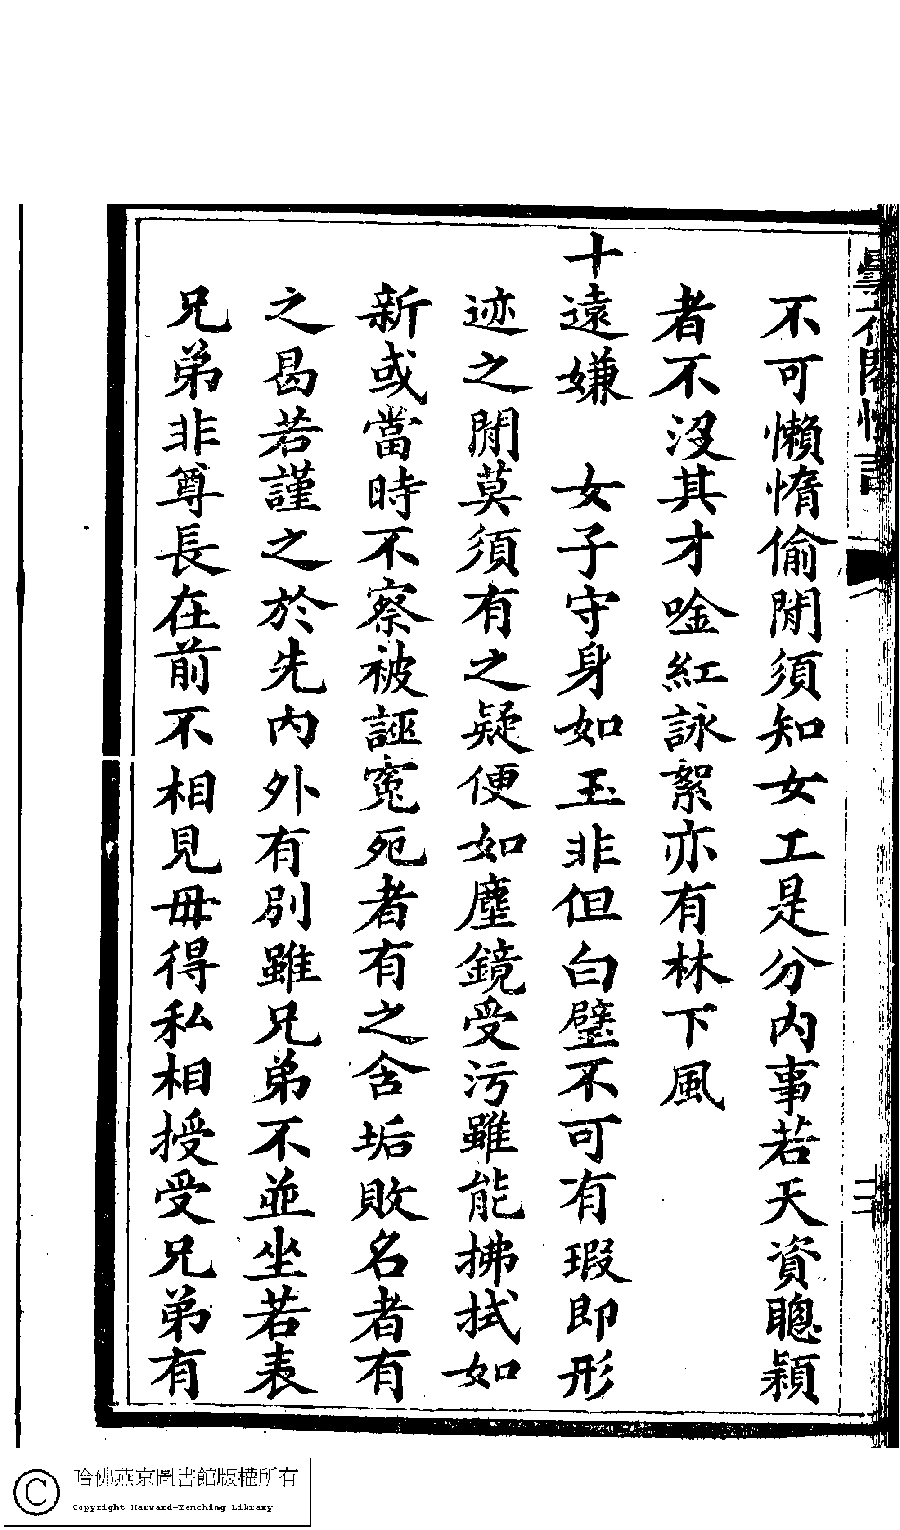 不可懶惰偷閒須知女工是分內事若天資聰穎
者不沒其才唫紅詠絮亦有林下風
十遠嫌　女子守身如玉非但白璧不可有瑕即形
迹之閒莫須有之疑便如塵鏡受污雖能拂拭如
新或當時不察被誣寃死者有之含垢敗名者有
之曷若謹之於先內外有別雖兄弟不並坐若表
兄弟非尊長在前不相見毋得私相授受兄弟有
哈佛燕京圖書館版權所有
Copyright Harvard-Yenching Library